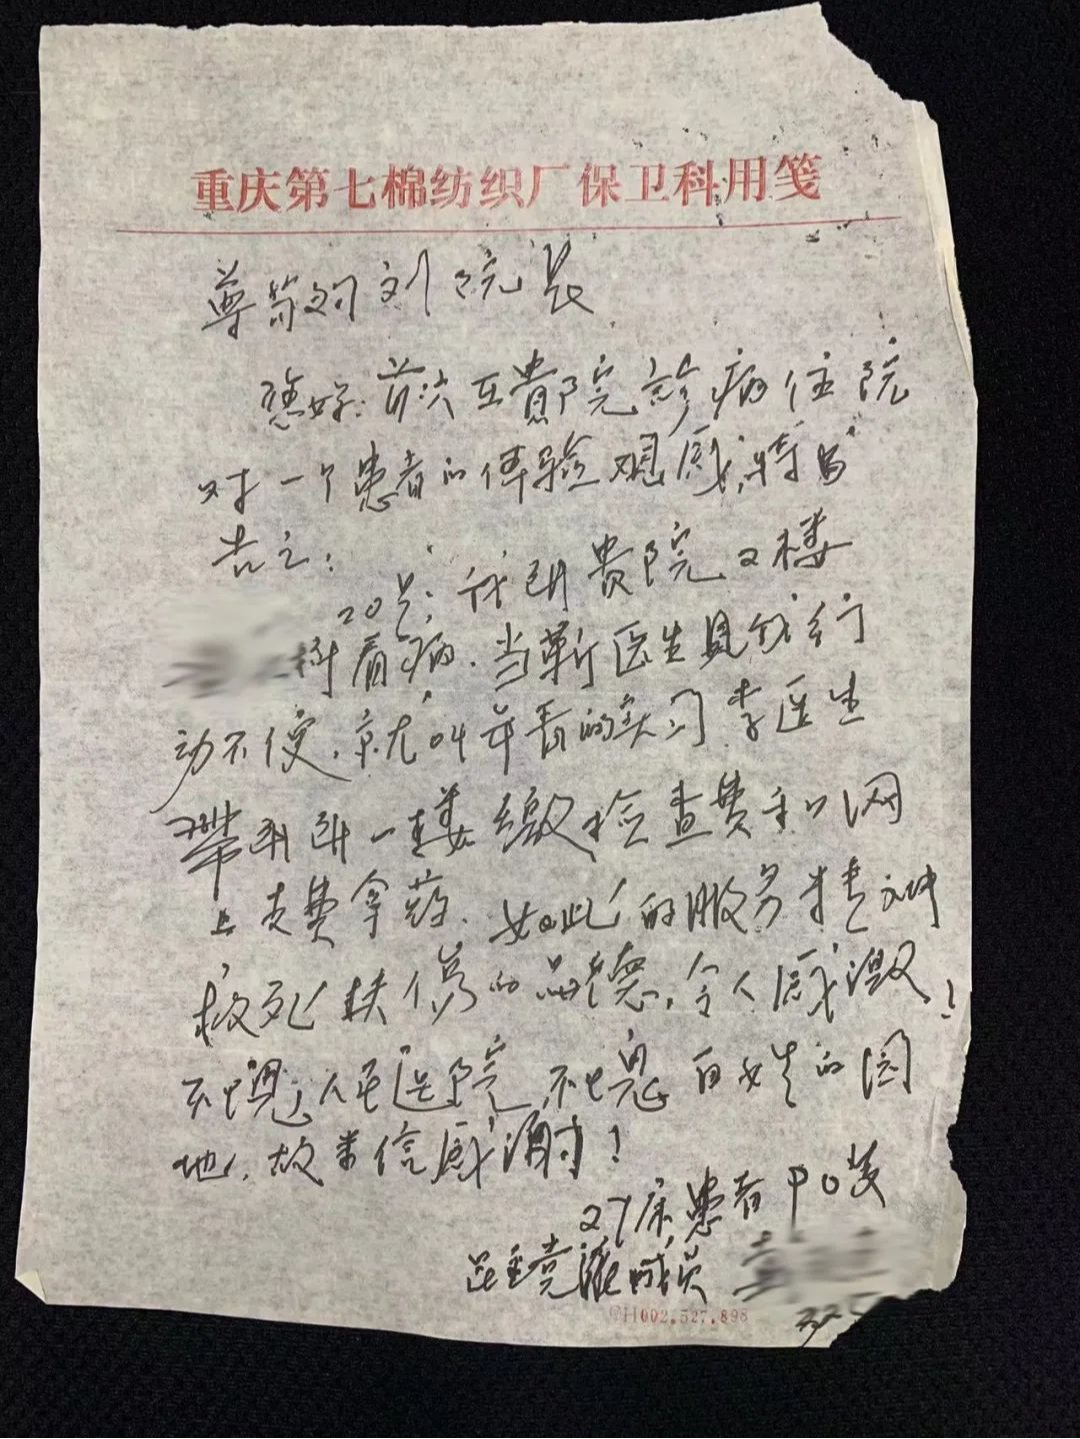 重庆第七棉纺织厂保卫科用笺
尊敬的刘院长
您好：前次在贵院诊病住院
对一个患者的体验观感，特为
告之：
20号：我到贵院2楼
看病．当靳医生見我行
动不便．就叫年青的实习李医生
帶我到一楼缴检查费和网
上支费拿药．如此的服务精神
救死扶伤的品德，令人感激！
不愧人民医院，不愧百姓的园
地，故来信感谢！
27床患者90岁
民主党派成员
002,527,898